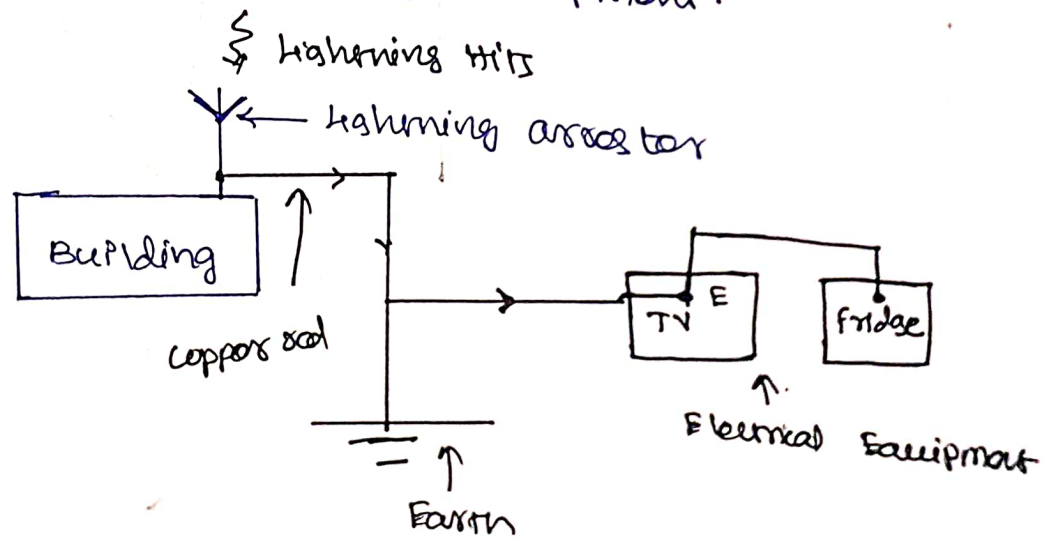 Lightning Hits
Lightning arrestor
Building
Copper rod
E
TV
fridge
Electrical Equipment
Earth